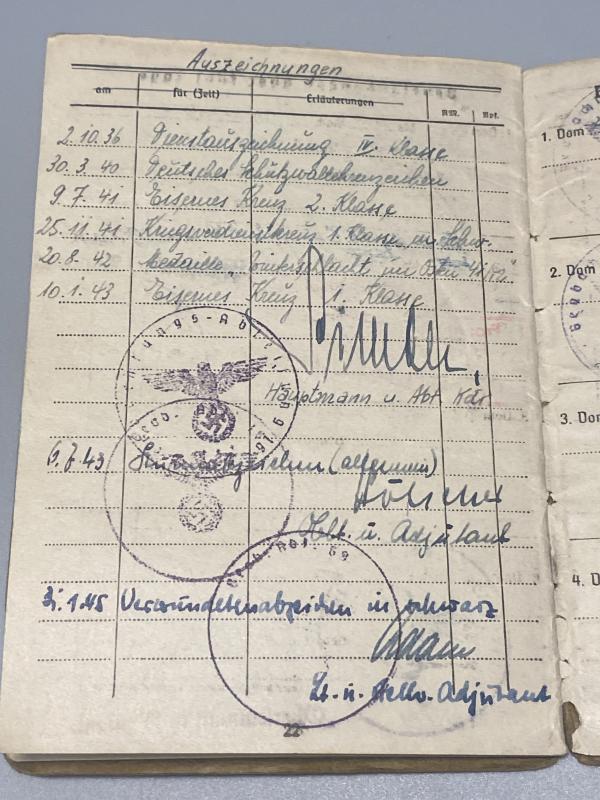 Auszeichnungen
am für (Zeit) Erläuterungen RM. Rpf.
2.10.36 Dienstauszeichnung IV. Klasse
30.3.40 Deutsches Schutzwallehrenzeichen
9.7.41 Eisernes Kreuz 2. Klasse
25.11.41 Kriegsverdienstkreuz 1. Klasse m. Schw.
20.8.42 Medaille "Winterschlacht im Osten 41/42"
10.1.43 Eisernes Kreuz 1. Klasse
Hauptmann u. Abt. Kdr
6.7.43 Sturmabzeichen (allgemein)
Oblt. u. Adjutant
31.1.45 Verwundetenabzeichen in schwarz
Lt. u. stellv. Adjutant
22
1. Dom
2. Dom
3. Dom
4. D